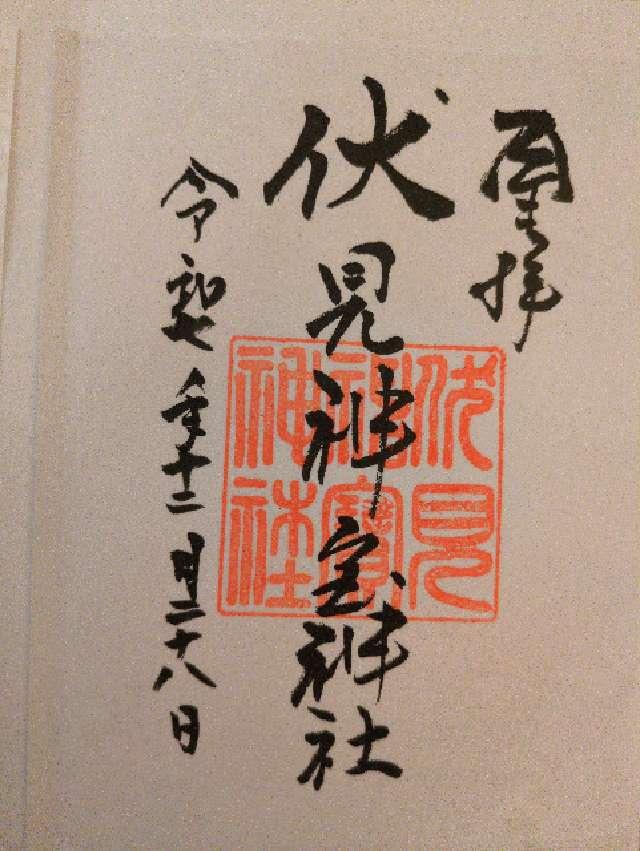 奉拝
伏見神宝神社
伏見
神寳
神社
令和七年十二月二十八日